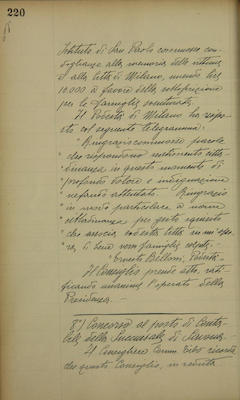 220
Istituto di San Paolo commosso con-
doglianze alla memoria delle vittime
e alla città di Milano, unendo lire
10.000 a favore della sottoscrizione
per le famiglie sventurate.
Il Podestà di Milano ha rispo-
sto col seguente telegramma:
"Ringrazio commosso parole
"che rispondono sentimento citta-
"dinanza in questo momento di
"profondo dolore e indignazione
"nefando attentato. Ringrazio
"in modo particolare a nome
"cittadinanza per gesto squisito
"che associa codesta città in un'ope-
"ra di bene verso famiglie colpite.
"Ernesto Belloni, Podestà."
Il Consiglio prende atto, rati-
ficando unanime l'operato della
Presidenza. —
8°) Concorso al posto di Conta-
bile della Succursale di
Il Consigliere Comm. ricorda
che questo Consiglio, in seduta